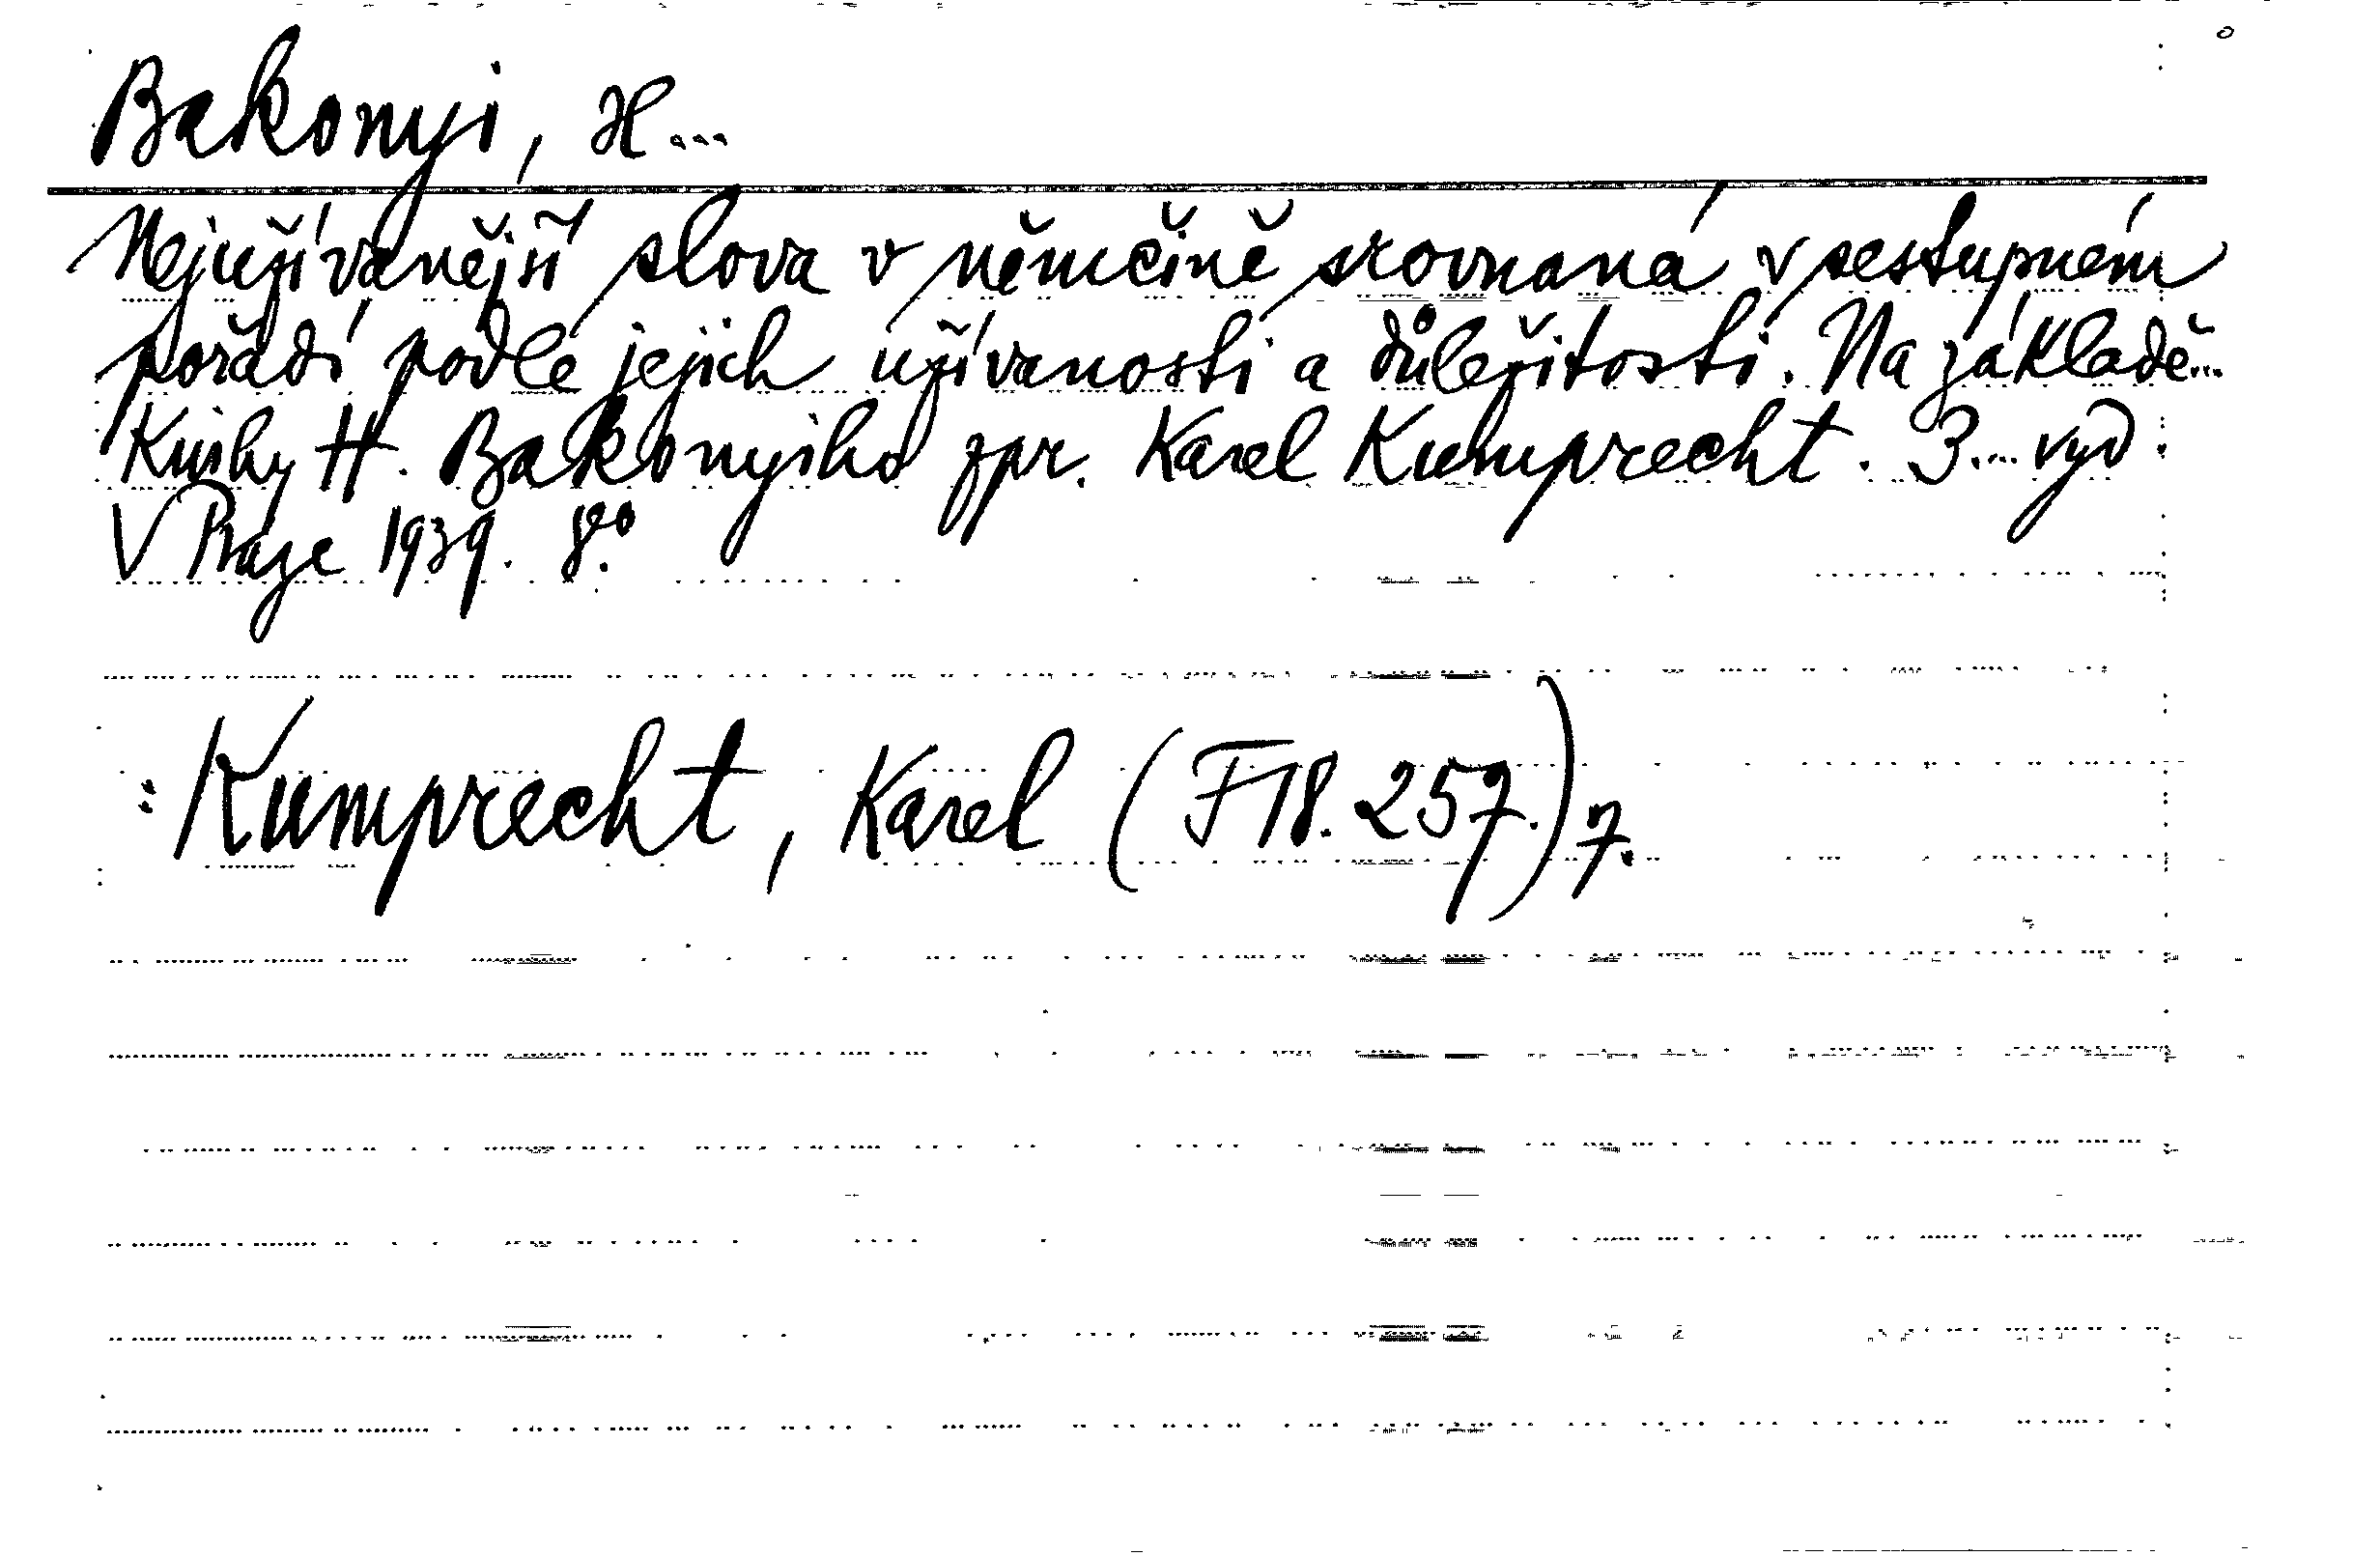 Bakonyi, H...
Nejužívanější slova v němčině srovnaná v sestupném
pořadí podle jejich užívanosti a důležitosti. Na základě...
Knihy H. Bakonyiho zpr. Karel Kumprecht. 3... vyd.
V Praze 1939. 8°.
: Kumprecht, Karel (F 18.257.) 7.